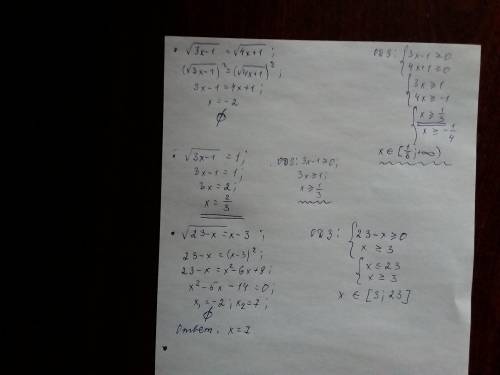 • √3x-1 = √4x+1 ;
(√3x-1)² = (√4x+1)² ;
3x-1 = 4x+1 ;
x = -2
∅
ОДЗ: { 3x-1 ≥ 0
4x+1 ≥ 0
{ 3x ≥ 1
4x ≥ -1
{ x ≥ 1/3
x ≥ -1/4
x ∈ [1/3; +∞)
• √3x-1 = 1 ;
3x-1 = 1 ;
3x = 2 ;
x = 2/3
ОДЗ: 3x-1 ≥ 0 ;
3x ≥ 1 ;
x ≥ 1/3
• √23-x = x-3 ;
23-x = (x-3)² ;
23-x = x²-6x+9 ;
x²-5x-14 = 0 ;
x₁ = -2 ; x₂ = 7 ;
∅
Ответ. x = 7
ОДЗ: { 23-x ≥ 0
x ≥ 3
{ x ≤ 23
x ≥ 3
x ∈ [3; 23]